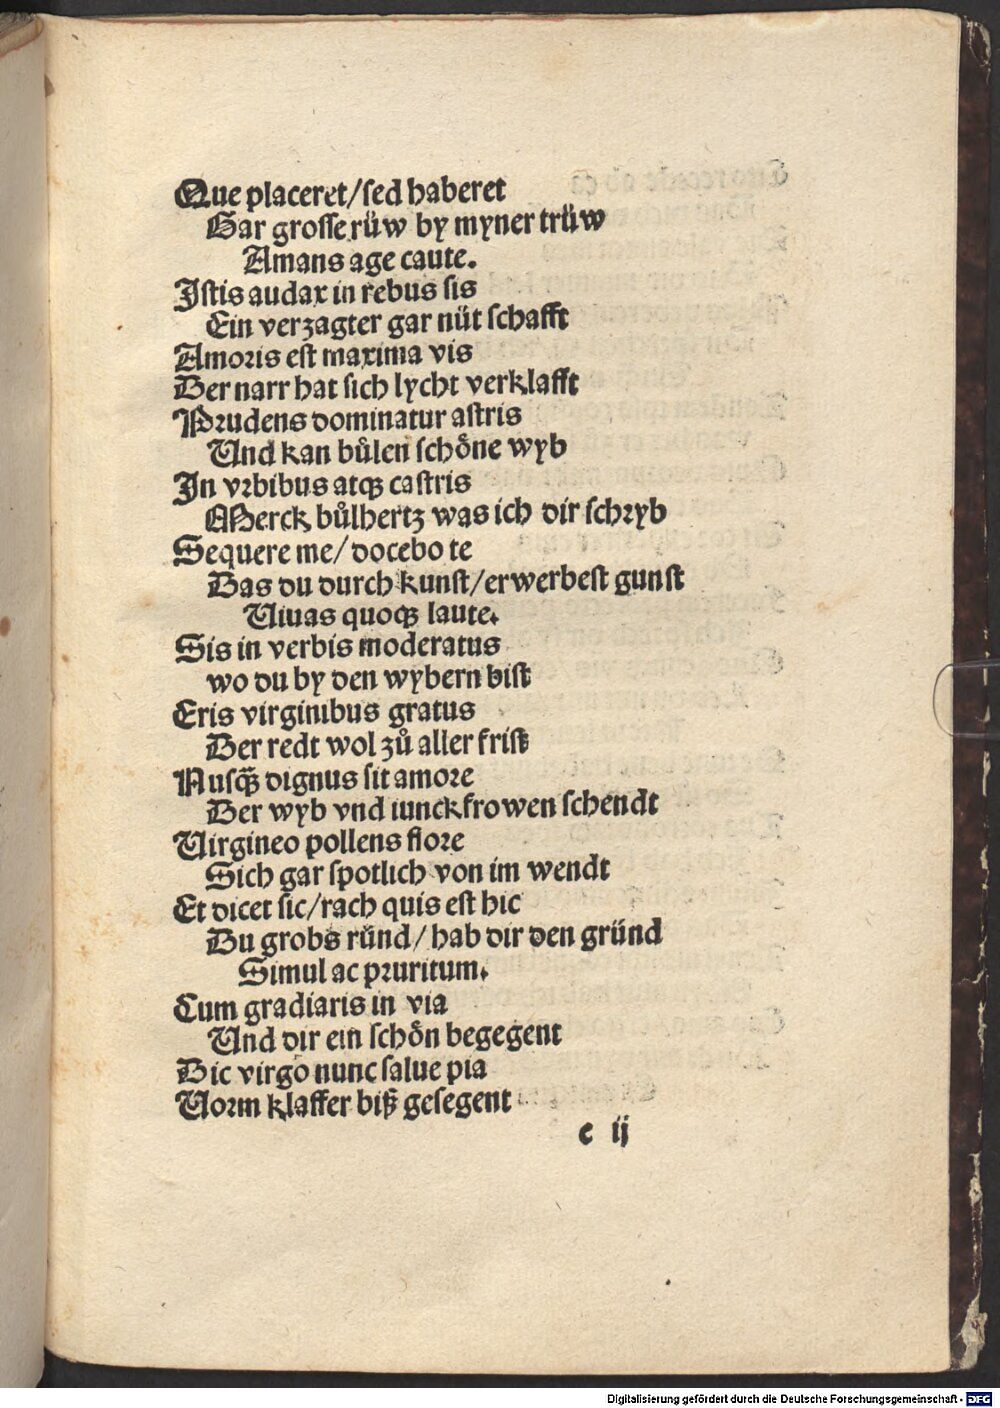 Que placeret/sed haberet
Gar grosse rüw by myner trüw
Amans age caute.
Istis audax in rebus sis
Ein verzagter gar nüt schafft
Amoris est maxima vis
Der narr hat sich lycht verklafft
Prudens dominatur astris
Und kan bůlen schöne wyb
In vrbibus atqꝫ castris
Merck bůlhertz was ich dir schryb
Sequere me/docebo te
Das du durch kunst/erwerbest gunst
Uiuas quoqꝫ laute.
Sis in verbis moderatus
wo du by den wybern bist
Eris virginibus gratus
Der redt wol zů aller frist
Nusq̃ dignus sit amore
Der wyb vnd iunckfrowen schendt
Uirgineo pollens flore
Sich gar spotlich von im wendt
Et dicet sic/rach quis est hic
Du grobs ründ/hab dir den gründ
Simul ac pruritum.
Cum gradiaris in via
Und dir ein schön begegent
Dic virgo nunc salue pia
Uorm klaffer biß gesegent
c ij
Digitalisierung gefördert durch die Deutsche Forschungsgemeinschaft - DFG